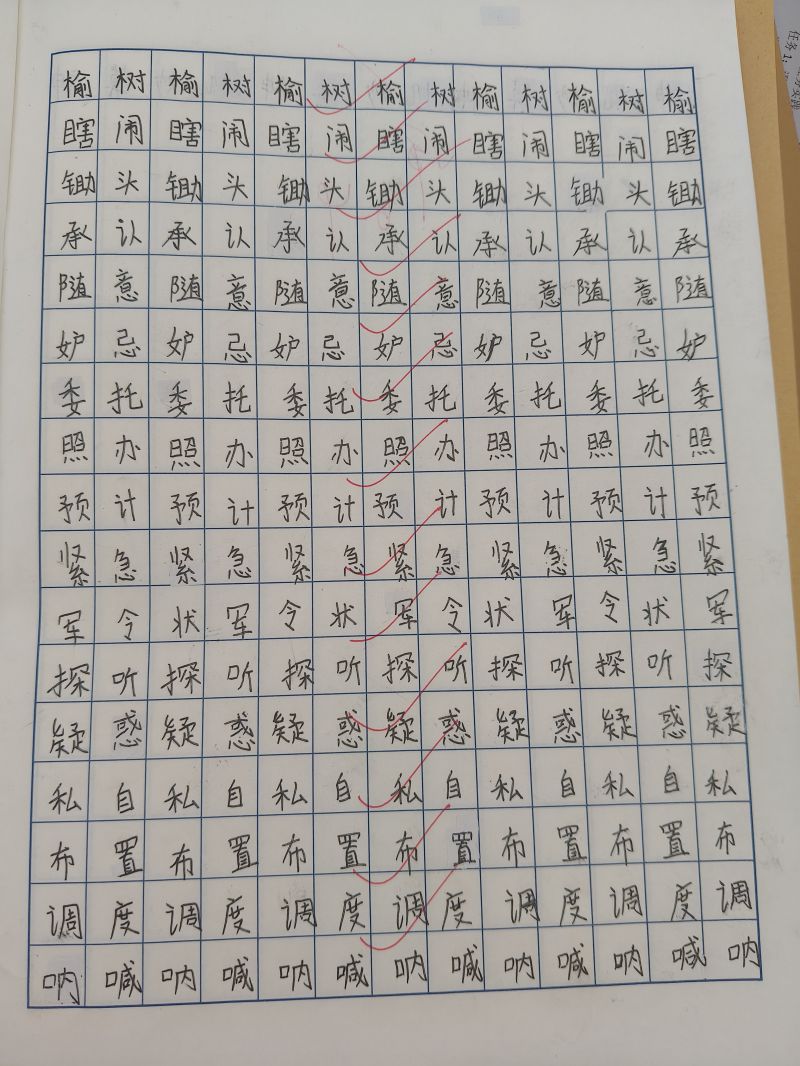 榆树榆树榆树榆树榆树榆树榆
瞎闹瞎闹瞎闹瞎闹瞎闹瞎闹瞎
锄头锄头锄头锄头锄头锄头锄
承认承认承认承认承认承认承
随意随意随意随意随意随意随
妒忌妒忌妒忌妒忌妒忌妒忌妒
委托委托委托委托委托委托委
照办照办照办照办照办照办照
预计预计预计预计预计预计预
紧急紧急紧急紧急紧急紧急紧
军令状军令状军令状军令状军
探听探听探听探听探听探听探
疑惑疑惑疑惑疑惑疑惑疑惑疑
私自私自私自私自私自私自私
布置布置布置布置布置布置布
调度调度调度调度调度调度调
呐喊呐喊呐喊呐喊呐喊呐喊呐
任务1: